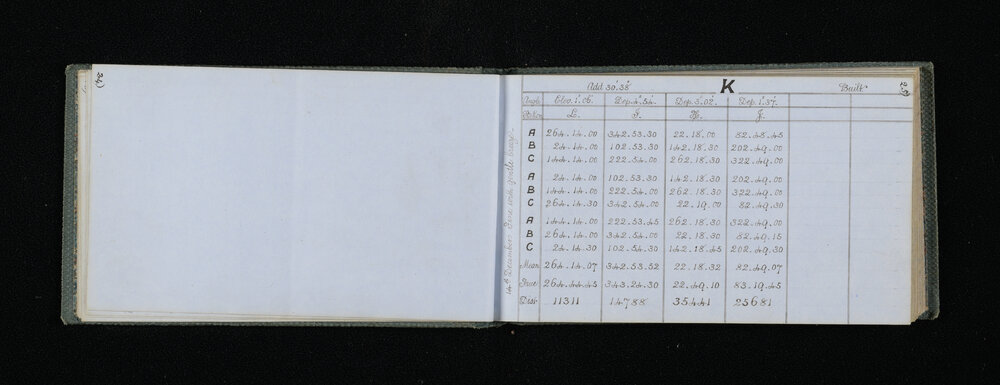 34)
Add 30'.38" K Built 25)
Angle Elev. 1°.06' Dep. 4'.54" Dep. 3'.02" Dep. 1'.37"
Station L. I. H. J.
14th December. Fine with gentle breeze.
A 264.14.00 342.53.30 22.18.00 82.48.45
B 24.14.00 102.53.30 142.18.30 202.49.00
C 144.14.00 222.54.00 262.18.30 322.49.00
A 24.14.00 102.53.30 142.18.30 202.49.00
B 144.14.00 222.54.00 262.18.30 322.49.00
C 264.14.30 342.54.00 22.19.00 82.49.30
A 144.14.00 222.53.45 262.18.30 322.49.00
B 264.14.00 342.54.00 22.18.30 82.49.15
C 24.14.30 102.54.30 142.18.45 202.49.30
Mean 264.14.07 342.53.52 22.18.32 82.49.07
True 264.44.45 343.24.30 22.49.10 83.19.45
Dist 11311 14788 35441 25681